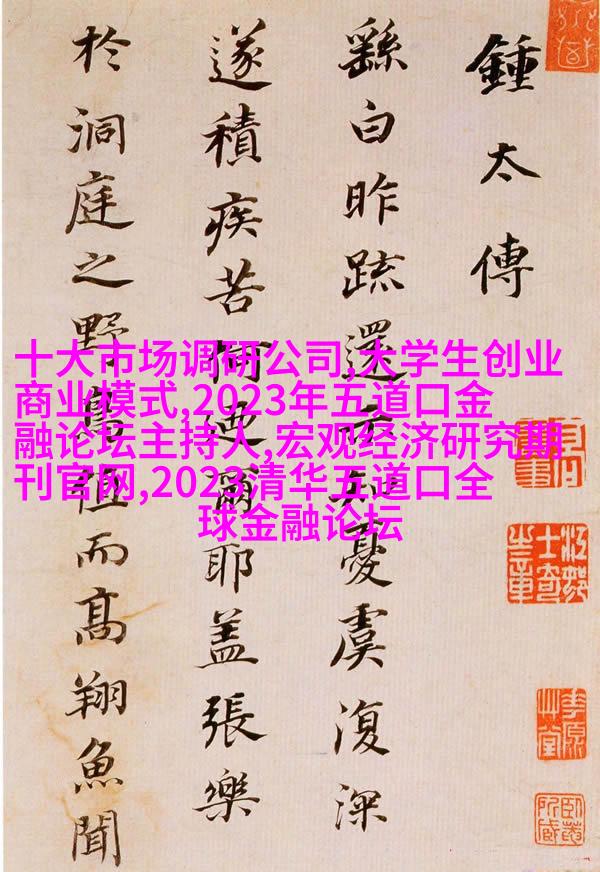 鍾太傅
繇白昨疏還知憂虞復深
遂積疾苦何迺爾耶蓋張樂
於洞庭之野鳥值而高翔魚聞
十大市场调研公司,大学生创业
商业模式,2023年五道口金
融论坛主持人,宏观经济研究期
刊官网,2023清华五道口全
球金融论坛
江邨
士奇
之章
臥菴
所藏